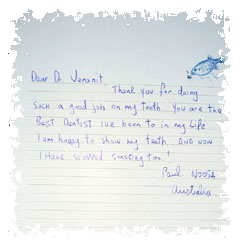 Dear Dr Venanit,
Thank you for doing
such a good job on my teeth. You are the
Best Dentist I've been to in my life
I am happy to show my teeth, AND NOW
I have stopped smoking too!
Paul NOOSA
Australia